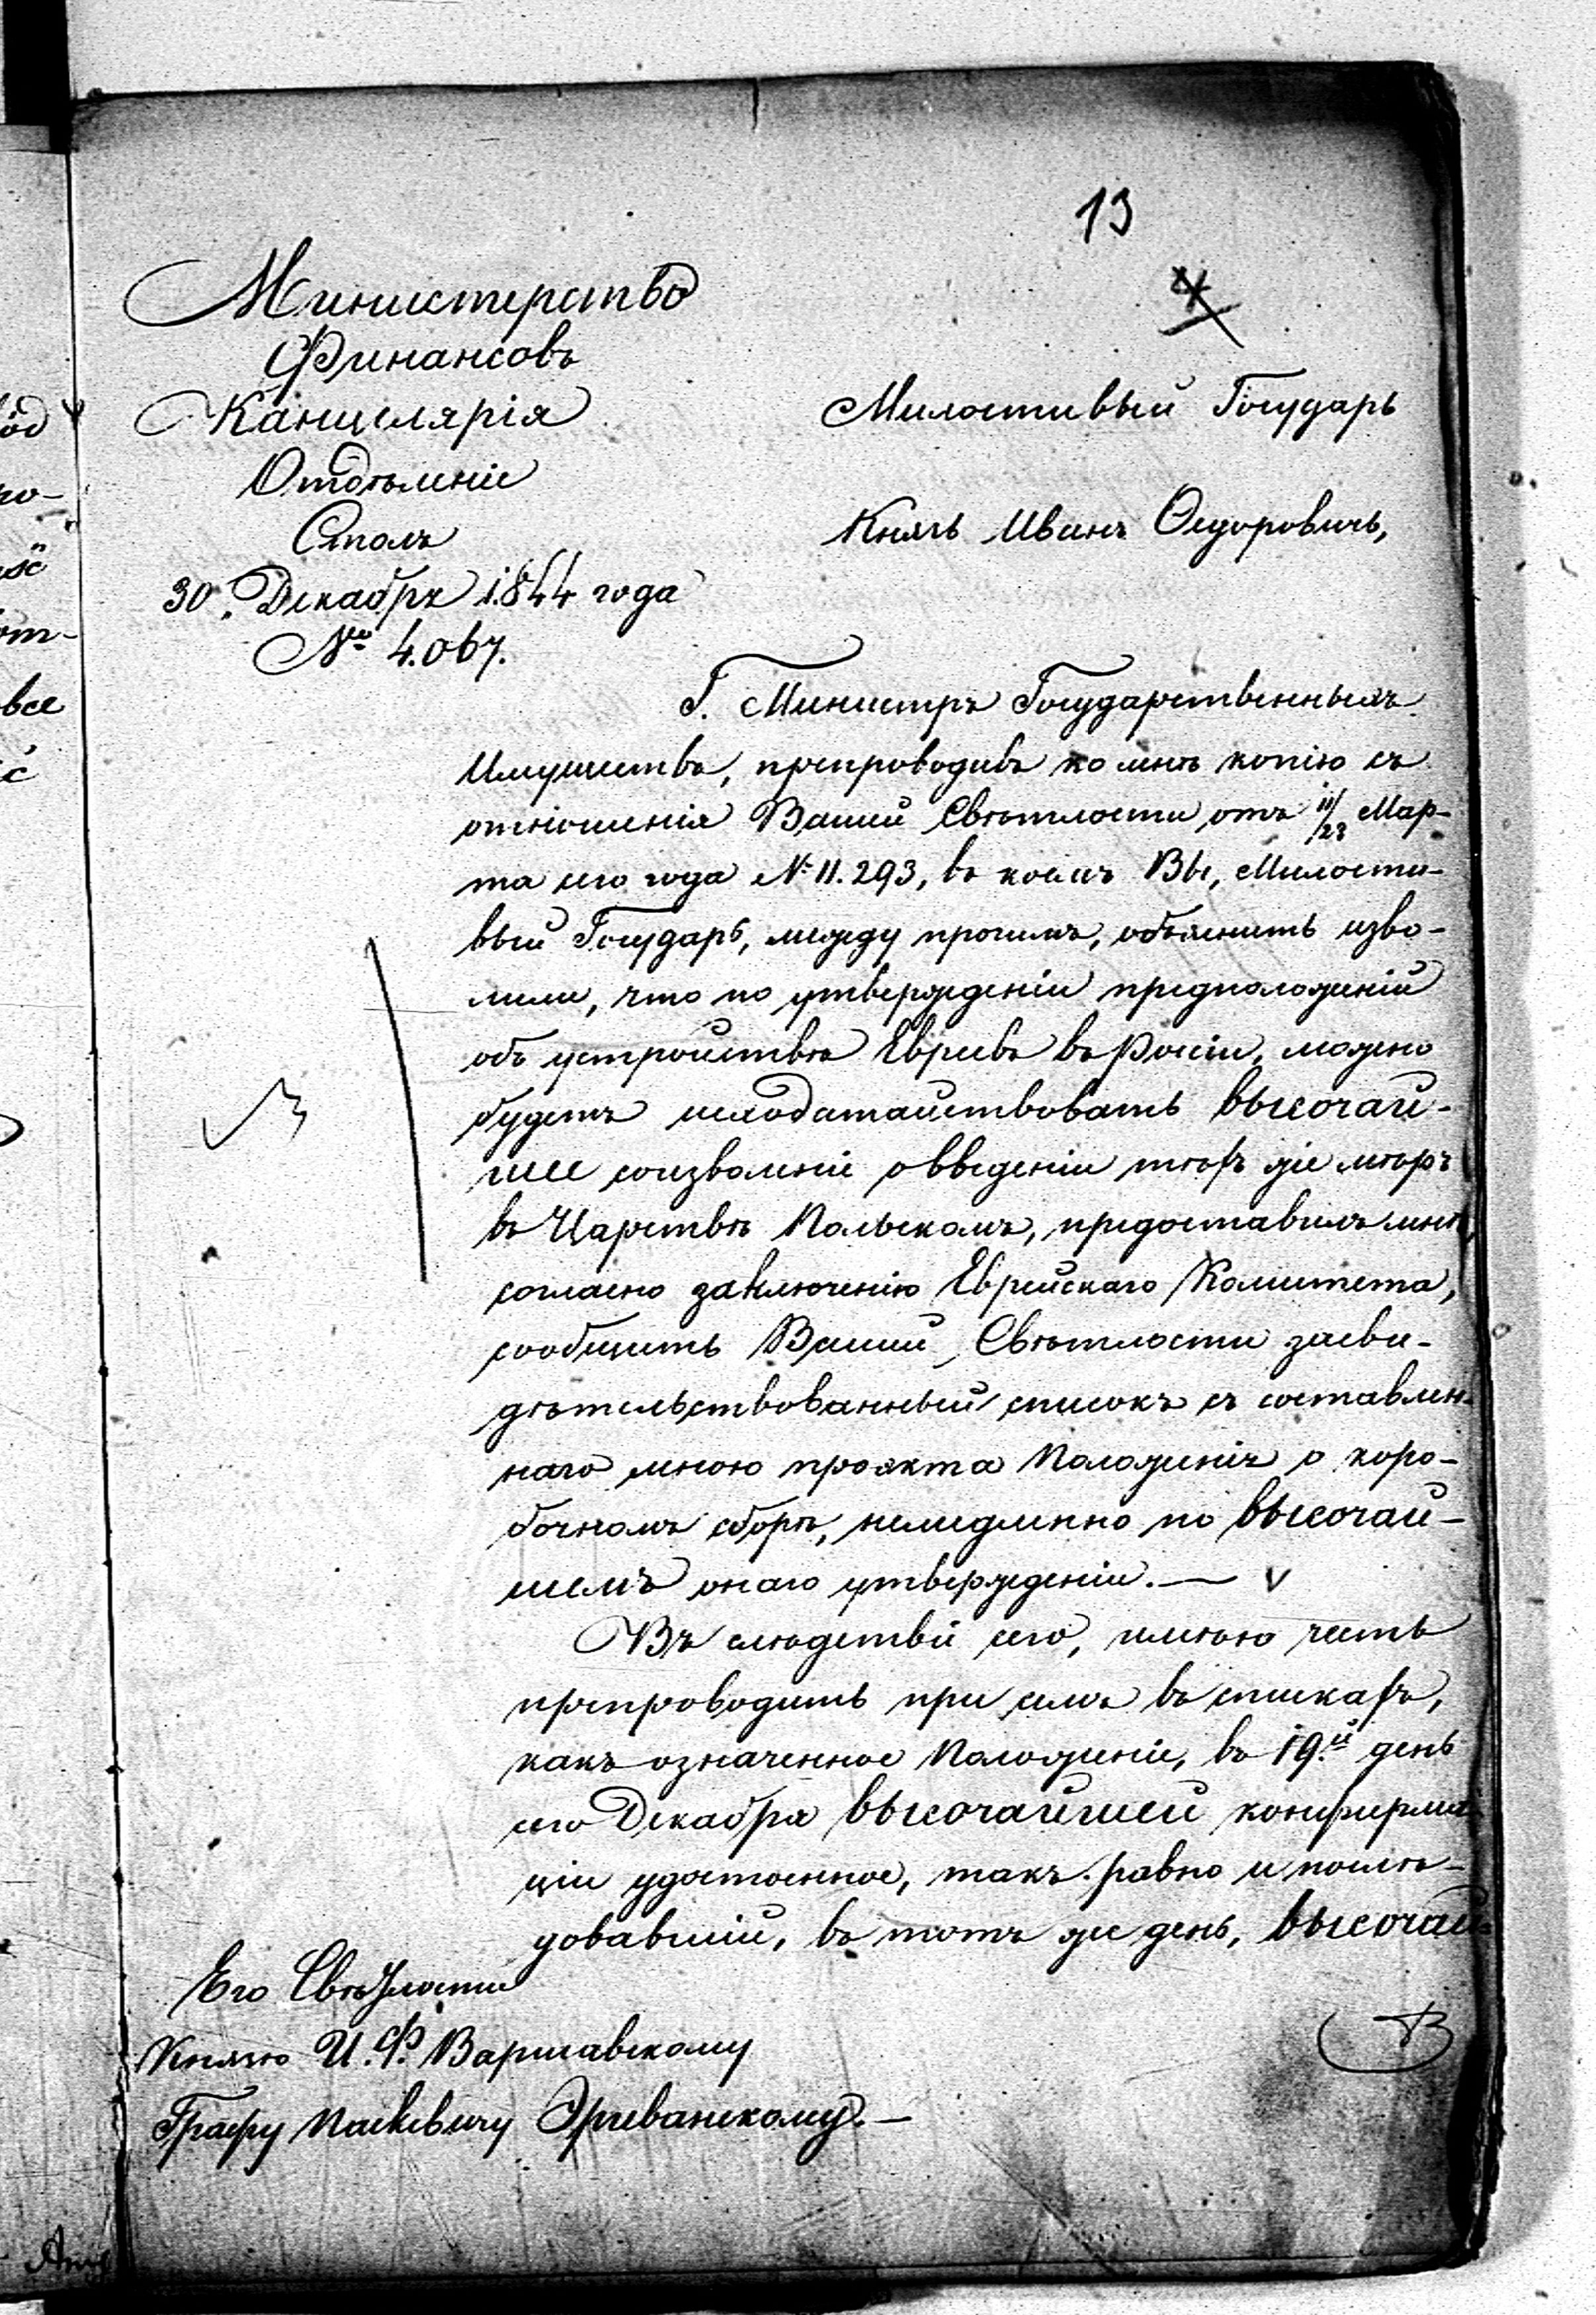 13
4
Министерство
Финансовъ
Канцелярія
Отдѣленіе
Столъ
30. Декабря 1844 года
№ 4.067.
Милостивый Государь
Князь Иванъ Ѳедоровичъ,
Г. Министръ Государственныхъ
Имуществъ, препроводивъ ко мнѣ копію съ
отношенія Вашей Свѣтлости отъ 11/23 Мар-
та сего года № 11.293, въ коемъ Вы, Милости-
вый Государь, между прочимъ, объяснить изво-
лили, что по утвержденіи предположеній
объ устройствѣ Евреевъ въ Россіи, можно
будетъ исходатайствовать Высочай-
шее соизволеніе о введеніи тѣхъ же мѣръ
въ Царствѣ Польскомъ, предоставилъ мнѣ,
согласно заключенію Еврейскаго Комитета,
сообщить Вашей Свѣтлости засви-
дѣтельствованный списокъ съ составлен-
наго мною проэкта Положенія о коро-
бочномъ сборѣ, немедленно по Высочай-
шемъ онаго утвержденіи. —
Въ слѣдствіе сего, имѣю честь
препроводить при семъ въ спискахъ,
какъ означенное Положеніе, въ 19.й день
сего Декабря Высочайшей конфирма-
ціи удостоенное, такъ равно и послѣ-
довавшій, въ тотъ же день, Высочай-
Его Свѣтлости
Князю И. Ф. Варшавскому
Графу Паскевичу Эриванскому. —